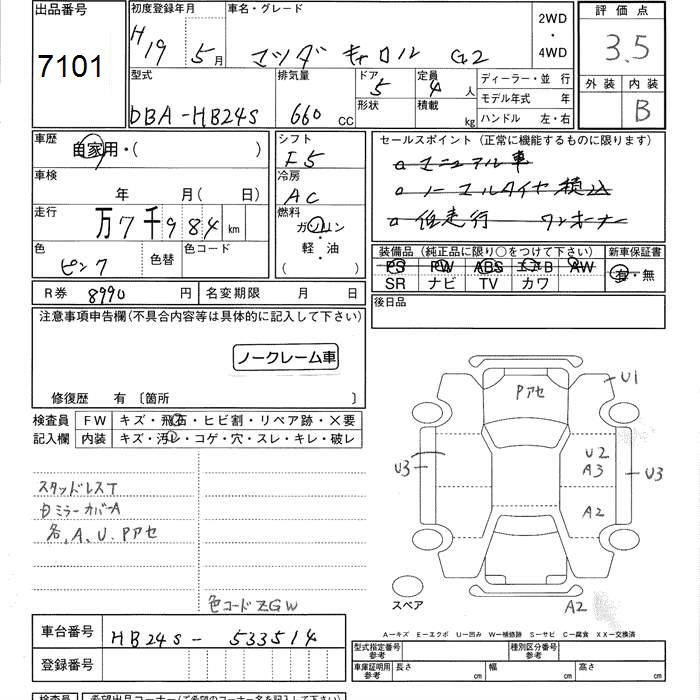 出品番号
7101
初度登録年月
H19 5月
車名・グレード
マツダ キャロル G2
2WD
・
4WD
評価点
3.5
外装 内装
B
型式
DBA-HB24S
排気量
660 CC
ドア
5
形状
定員
4人
積載
kg
ディーラー・並行
モデル年式 年
ハンドル 左・右
車歴
自家用・( )
車検
年 月( 日)
走行
万7千984 km
色
ピンク
色替
色コード
シフト
F5
冷房
AC
燃料
ガソリン
軽・油
( )
セールスポイント(正常に機能するものに限ります)
a マニュアル車
a ノーマルタイヤ積込
a 低走行 ワンオーナー
装備品(純正品に限り○をつけて下さい)
PS PW ABS エアB AW
SR ナビ TV カワ
新車保証書
有・無
R券 8990 円
名変期限 月 日
後日品
注意事項申告欄(不具合内容等は具体的に記入して下さい)
ノークレーム車
修復歴 有〔箇所 〕
検査員
記入欄
FW キズ・飛石・ヒビ割・リペア跡・×要
内装 キズ・汚れ・コゲ・穴・スレ・キレ・破レ
スタッドレスT
ミラーカバーA
各、A、U、Pアセ
色コードZGW
Pアセ
U1
U3
U2
A3
U3
A2
A2
スペア
車台番号
HB24S-533514
登録番号
A—キズ E—エクボ U—凹み W—補修跡 S—サビ C—腐食 XX—交換済
型式指定番号
参考
種別区分番号
参考
車庫証明用
参考
長さ cm
幅 cm
高さ cm
検査員
希望出品コーナー(ご希望のコーナー名を記入下さい)